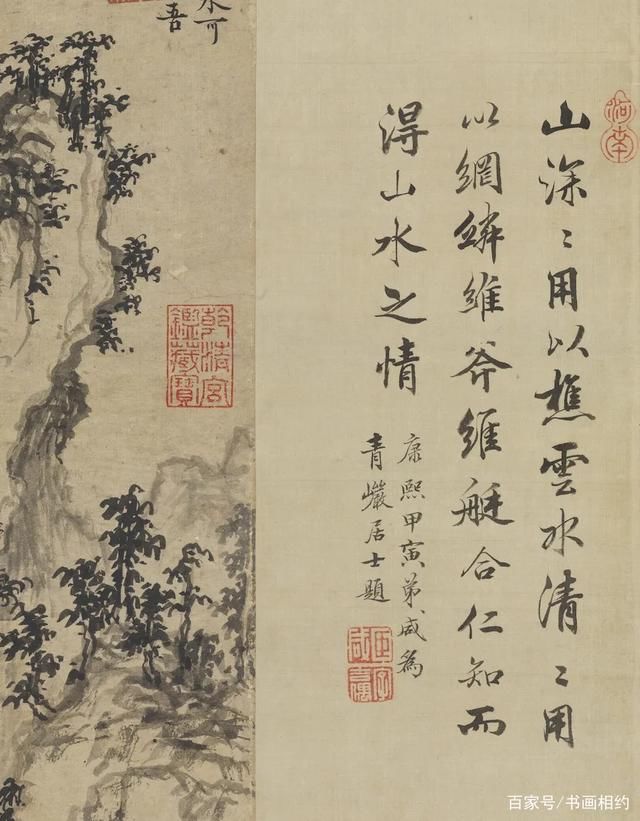 山深〻用以樵雲水清〻用
以網鱗維斧維艇合仁知而
淂山水之情
康熙甲寅弟咸為
青巖居士題
乾清宮
鑑藏寶
水可
吾
百家号/书画相约